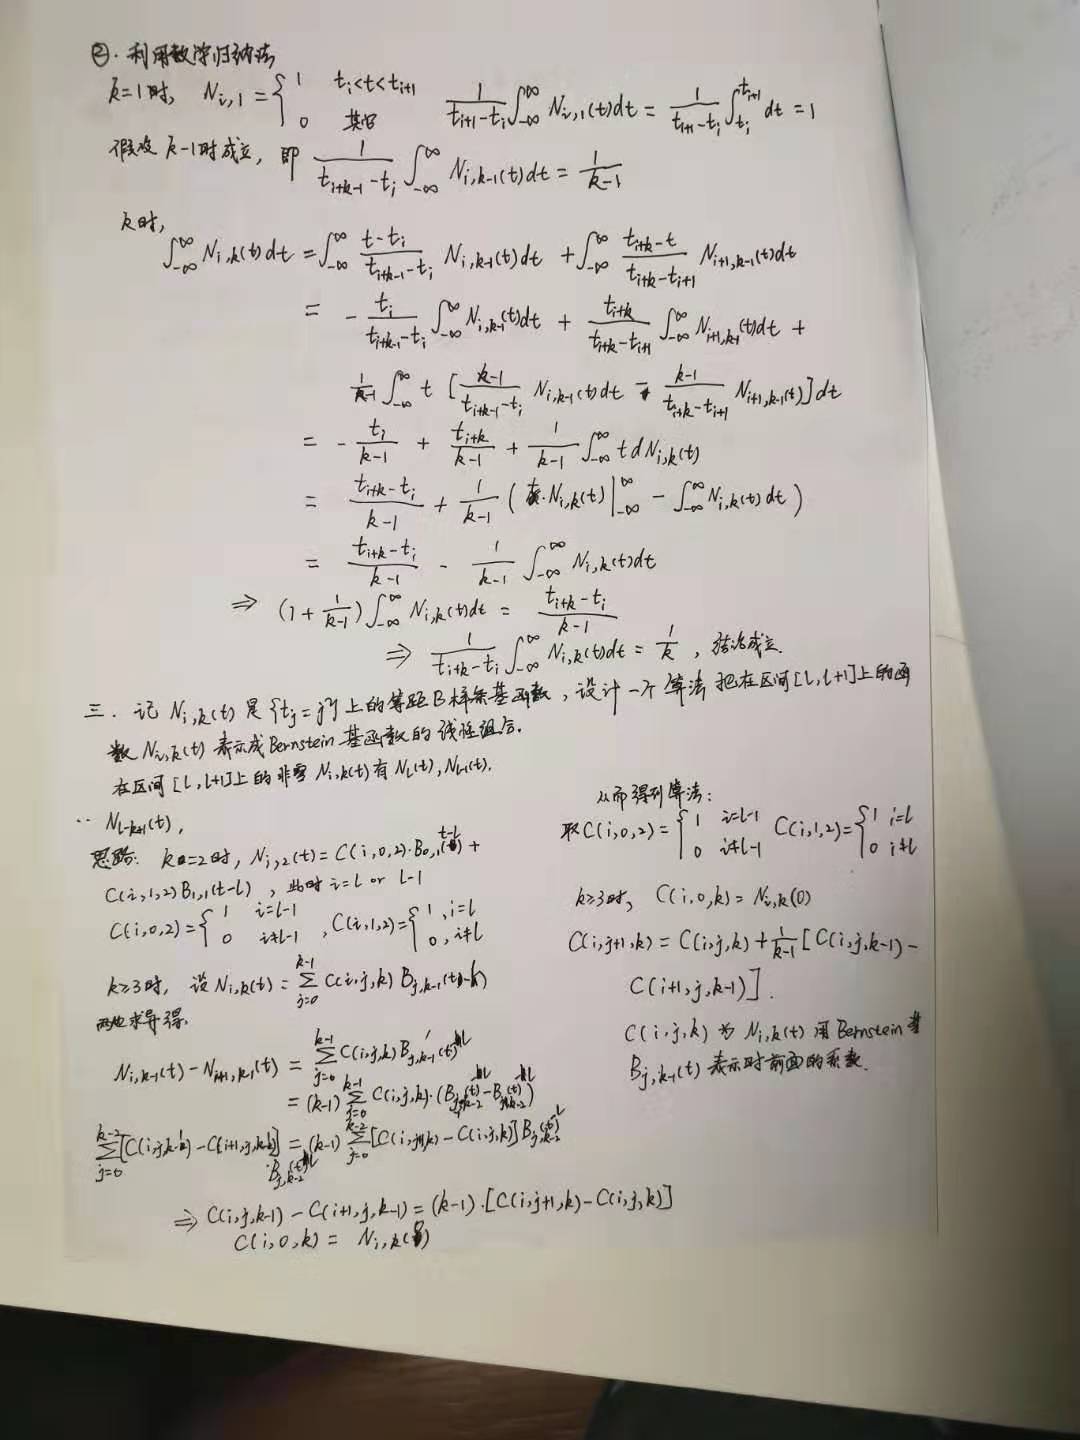 ②. 利用数学归纳法
k=1时, N_{i,1} = { 1 t_i<t<t_{i+1} ; 0 其它 1/(t_{i+1}-t_i) ∫_{-∞}^{∞} N_{i,1}(t)dt = 1/(t_{i+1}-t_i) ∫_{t_i}^{t_{i+1}} dt = 1
假设 k-1时成立, 即 1/(t_{i+k-1}-t_i) ∫_{-∞}^{∞} N_{i,k-1}(t)dt = 1/(k-1)
k时,
∫_{-∞}^{∞} N_{i,k}(t)dt = ∫_{-∞}^{∞} (t-t_i)/(t_{i+k-1}-t_i) N_{i,k-1}(t)dt + ∫_{-∞}^{∞} (t_{i+k}-t)/(t_{i+k}-t_{i+1}) N_{i+1,k-1}(t)dt
= - t_i/(t_{i+k-1}-t_i) ∫_{-∞}^{∞} N_{i,k-1}(t)dt + t_{i+k}/(t_{i+k}-t_{i+1}) ∫_{-∞}^{∞} N_{i+1,k-1}(t)dt +
1/(k-1) ∫_{-∞}^{∞} t [ (k-1)/(t_{i+k-1}-t_i) N_{i,k-1}(t)dt - (k-1)/(t_{i+k}-t_{i+1}) N_{i+1,k-1}(t) ] dt
= - t_i/(k-1) + t_{i+k}/(k-1) + 1/(k-1) ∫_{-∞}^{∞} t dN_{i,k}(t)
= (t_{i+k}-t_i)/(k-1) + 1/(k-1) ( t·N_{i,k}(t) |_{-∞}^{∞} - ∫_{-∞}^{∞} N_{i,k}(t)dt )
= (t_{i+k}-t_i)/(k-1) - 1/(k-1) ∫_{-∞}^{∞} N_{i,k}(t)dt
⇒ (1+1/(k-1)) ∫_{-∞}^{∞} N_{i,k}(t)dt = (t_{i+k}-t_i)/(k-1)
⇒ 1/(t_{i+k}-t_i) ∫_{-∞}^{∞} N_{i,k}(t)dt = 1/k , 结论成立.
三. 记 N_{i,k}(t) 是 {t_j=j} 上的等距B样条基函数, 设计一个算法把在区间[l,l+1]上的函
数 N_{i,k}(t) 表示成Bernstein 基函数的线性组合.
在区间[l,l+1]上的非零 N_{i,k}(t) 有 N_l(t), N_{l-1}(t),
‥ N_{l-k+1}(t),
思路: k=2时, N_{i,2}(t) = C(i,0,2)·B_{0,1}(t-l) +
C(i,1,2)B_{1,1}(t-l) , 此时 i=l or l-1
C(i,0,2) = { 1 i=l-1 ; 0 i≠l-1 , C(i,1,2) = { 1, i=l ; 0, i≠l
k≥3时, 设 N_{i,k}(t) = Σ_{j=0}^{k-1} C(i,j,k) B_{j,k-1}(t-l)
两边求导得,
N_{i,k-1}(t) - N_{i+1,k-1}(t) = Σ_{j=0}^{k-1} C(i,j,k) B'_{j,k-1}(t-l)
= (k-1) Σ_{j=0}^{k-1} C(i,j,k)·(B_{j-1,k-2}(t-l) - B_{j,k-2}(t-l))
Σ_{j=0}^{k-2} [C(i,j,k-1) - C(i+1,j,k-1)] B_{j,k-2}(t-l) = (k-1) Σ_{j=0}^{k-2} [C(i,j+1,k) - C(i,j,k)] B_{j,k-2}(t-l)
⇒ C(i,j,k-1) - C(i+1,j,k-1) = (k-1)·[C(i,j+1,k) - C(i,j,k)]
C(i,0,k) = N_{i,k}(l)
从而得到算法:
取 C(i,0,2) = { 1 i=l-1 ; 0 i≠l-1 C(i,1,2) = { 1 i=l ; 0 i≠l
k≥3时, C(i,0,k) = N_{i,k}(0)
C(i,j+1,k) = C(i,j,k) + 1/(k-1) [ C(i,j,k-1) -
C(i+1,j,k-1) ].
C(i,j,k) 为 N_{i,k}(t) 用 Bernstein 基
B_{j,k-1}(t) 表示时前面的系数.